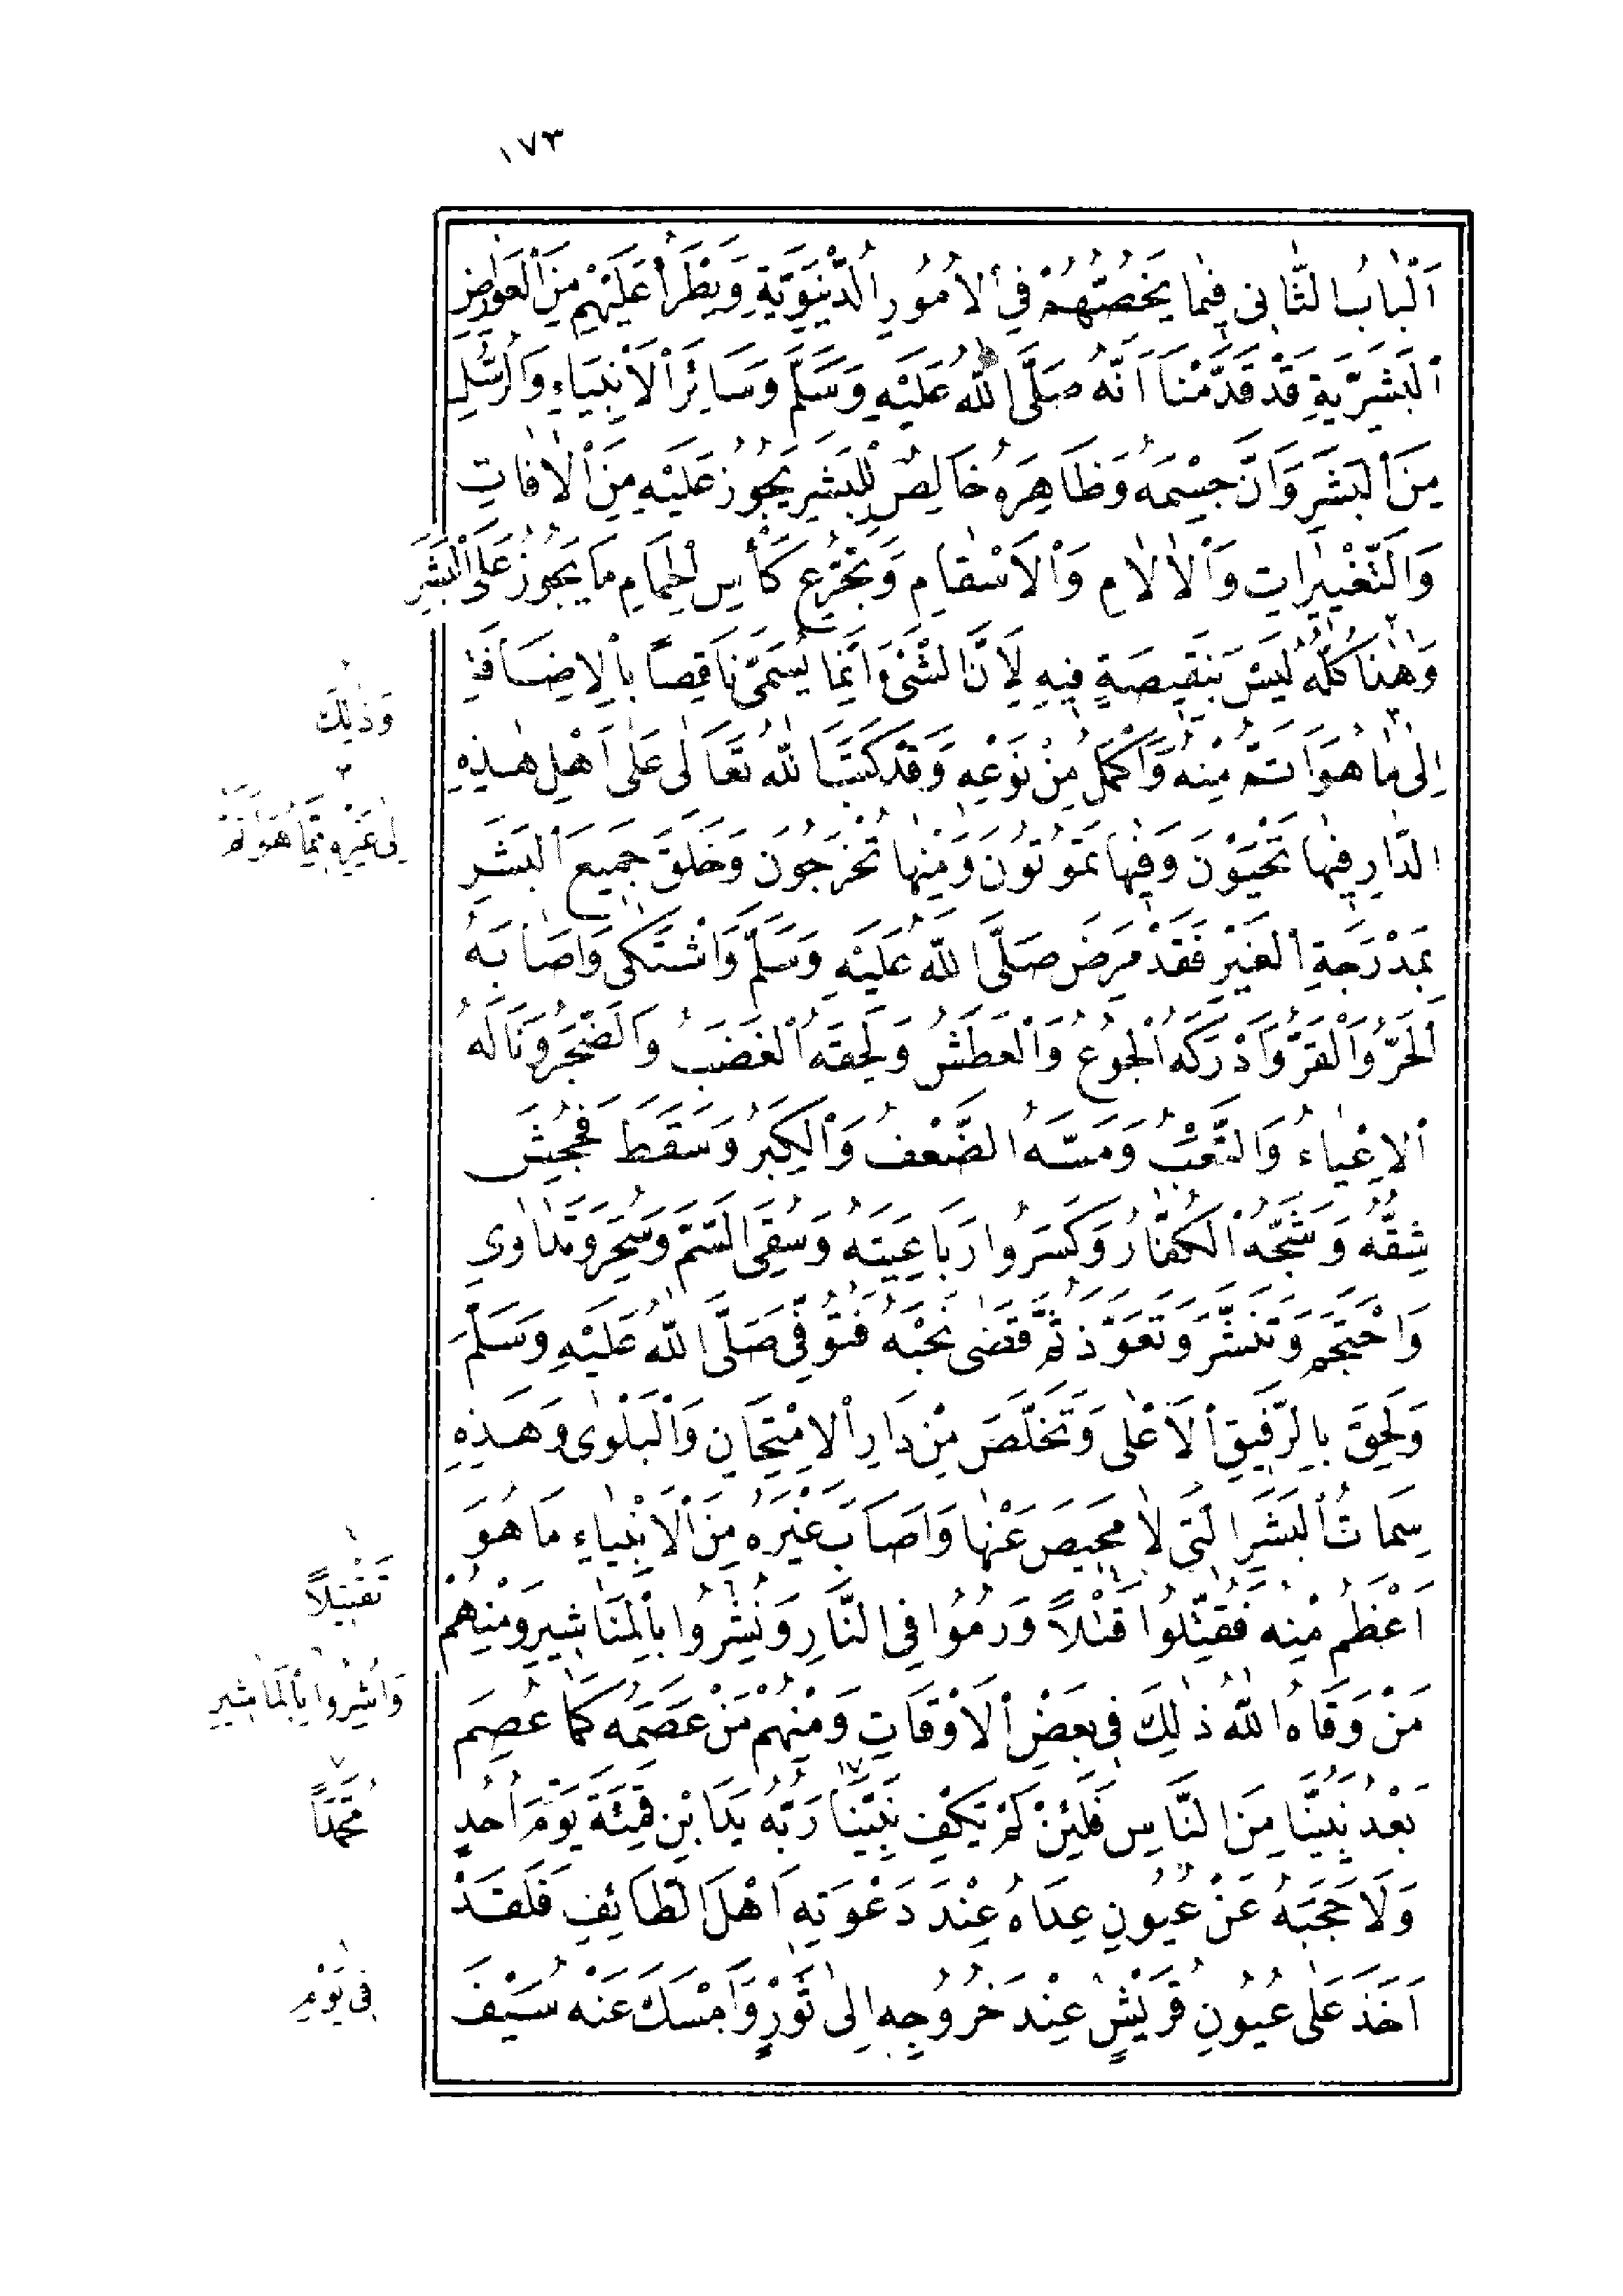 ١٧٣
اَلْبَابُ الثَّانِى فِيمَا يَخُصُّهُمْ فِى الْاُمُورِ الدُّنْيَوِيَّةِ وَيَطْرَأُ عَلَيْهِمْ مِنَ الْعَوَارِضِ
الْبَشَرِيَّةِ قَدْ قَدَّمْنَا اَنَّهُ صَلَّى اللهُ عَلَيْهِ وَسَلَّمَ وَسَائِرَ الْاَنْبِيَاءِ وَالرُّسُلِ
مِنَ الْبَشَرِ وَاَنَّ جِسْمَهُ وَظَاهِرَهُ خَالِصٌ لِلْبَشَرِ يَجُوزُ عَلَيْهِ مِنَ الْاٰفَاتِ
وَالتَّغْيِيرَاتِ وَالْاٰلَامِ وَالْاَسْقَامِ وَتَجَرُّعِ كَأْسِ الْحِمَامِ مَا يَجُوزُ عَلَى الْبَشَرِ
وَهٰذَا كُلُّهُ لَيْسَ بِنَقِيصَةٍ فِيهِ لِاَنَّ الشَّىْءَ اِنَّمَا يُسَمّٰى نَاقِصًا بِالْاِضَافَةِ
اِلٰى مَا هُوَ اَتَمُّ مِنْهُ وَاَكْمَلُ مِنْ نَوْعِهِ وَقَدْ كَتَبَ اللهُ تَعَالٰى عَلٰى اَهْلِ هٰذِهِ
الدَّارِ فِيهَا تَحْيَوْنَ وَفِيهَا تَمُوتُونَ وَمِنْهَا تُخْرَجُونَ وَخَلَقَ جَمِيعَ الْبَشَرِ
بِمَدْرَجَةِ الْغِيَرِ فَقَدْ مَرِضَ صَلَّى اللهُ عَلَيْهِ وَسَلَّمَ وَاشْتَكٰى وَاَصَابَهُ
الْحَرُّ وَالْقَرُّ وَاَدْرَكَهُ الْجُوعُ وَالْعَطَشُ وَلَحِقَهُ الْغَضَبُ وَالضَّجَرُ وَنَالَهُ
الْاِعْيَاءُ وَالتَّعَبُ وَمَسَّهُ الضَّعْفُ وَالْكِبَرُ وَسَقَطَ فَجُحِشَ
شِقُّهُ وَشَجَّهُ الْكُفَّارُ وَكَسَرُوا رَبَاعِيَتَهُ وَسُقِىَ السَّمَّ وَسُحِرَ وَتَدَاوٰى
وَاحْتَجَمَ وَتَنَشَّرَ وَتَعَوَّذَ ثُمَّ قَضٰى نَحْبَهُ فَتُوُفِّىَ صَلَّى اللهُ عَلَيْهِ وَسَلَّمَ
وَلَحِقَ بِالرَّفِيقِ الْاَعْلٰى وَتَخَلَّصَ مِنْ دَارِ الْاِمْتِحَانِ وَالْبَلْوٰى وَهٰذِهِ
سِمَاتُ الْبَشَرِ الَّتِى لَا مَحِيصَ عَنْهَا وَاَصَابَ غَيْرَهُ مِنَ الْاَنْبِيَاءِ مَا هُوَ
اَعْظَمُ مِنْهُ فَقُتِّلُوا قَتْلًا وَرُمُوا فِى النَّارِ وَنُشِرُوا بِالْمَنَاشِيرِ وَمِنْهُمْ
مَنْ وَقَاهُ اللهُ ذٰلِكَ فِى بَعْضِ الْاَوْقَاتِ وَمِنْهُمْ مَنْ عَصَمَهُ كَمَا عُصِمَ
بَعْدُ نَبِيُّنَا مِنَ النَّاسِ فَلَئِنْ لَمْ يَكْفِ نَبِيَّنَا رَبُّهُ يَدَ ابْنِ قَمِئَةَ يَوْمَ اُحُدٍ
وَلَا حَجَبَهُ عَنْ عُيُونِ عِدَاهُ عِنْدَ دَعْوَتِهِ اَهْلَ الطَّائِفِ فَلَقَدْ
اَخَذَ عَلٰى عُيُونِ قُرَيْشٍ عِنْدَ خُرُوجِهِ اِلٰى ثَوْرٍ وَاَمْسَكَ عَنْهُ سَيْفَ
وَذٰلِكَ
اِلٰى غَيْرِهِ مِمَّا هُوَ اَتَمُّ
تَقْتِيلًا
وَاُشِرُوا بِالْمَاٰشِيرِ
مُحَمَّدًا
فِى يَوْمِ